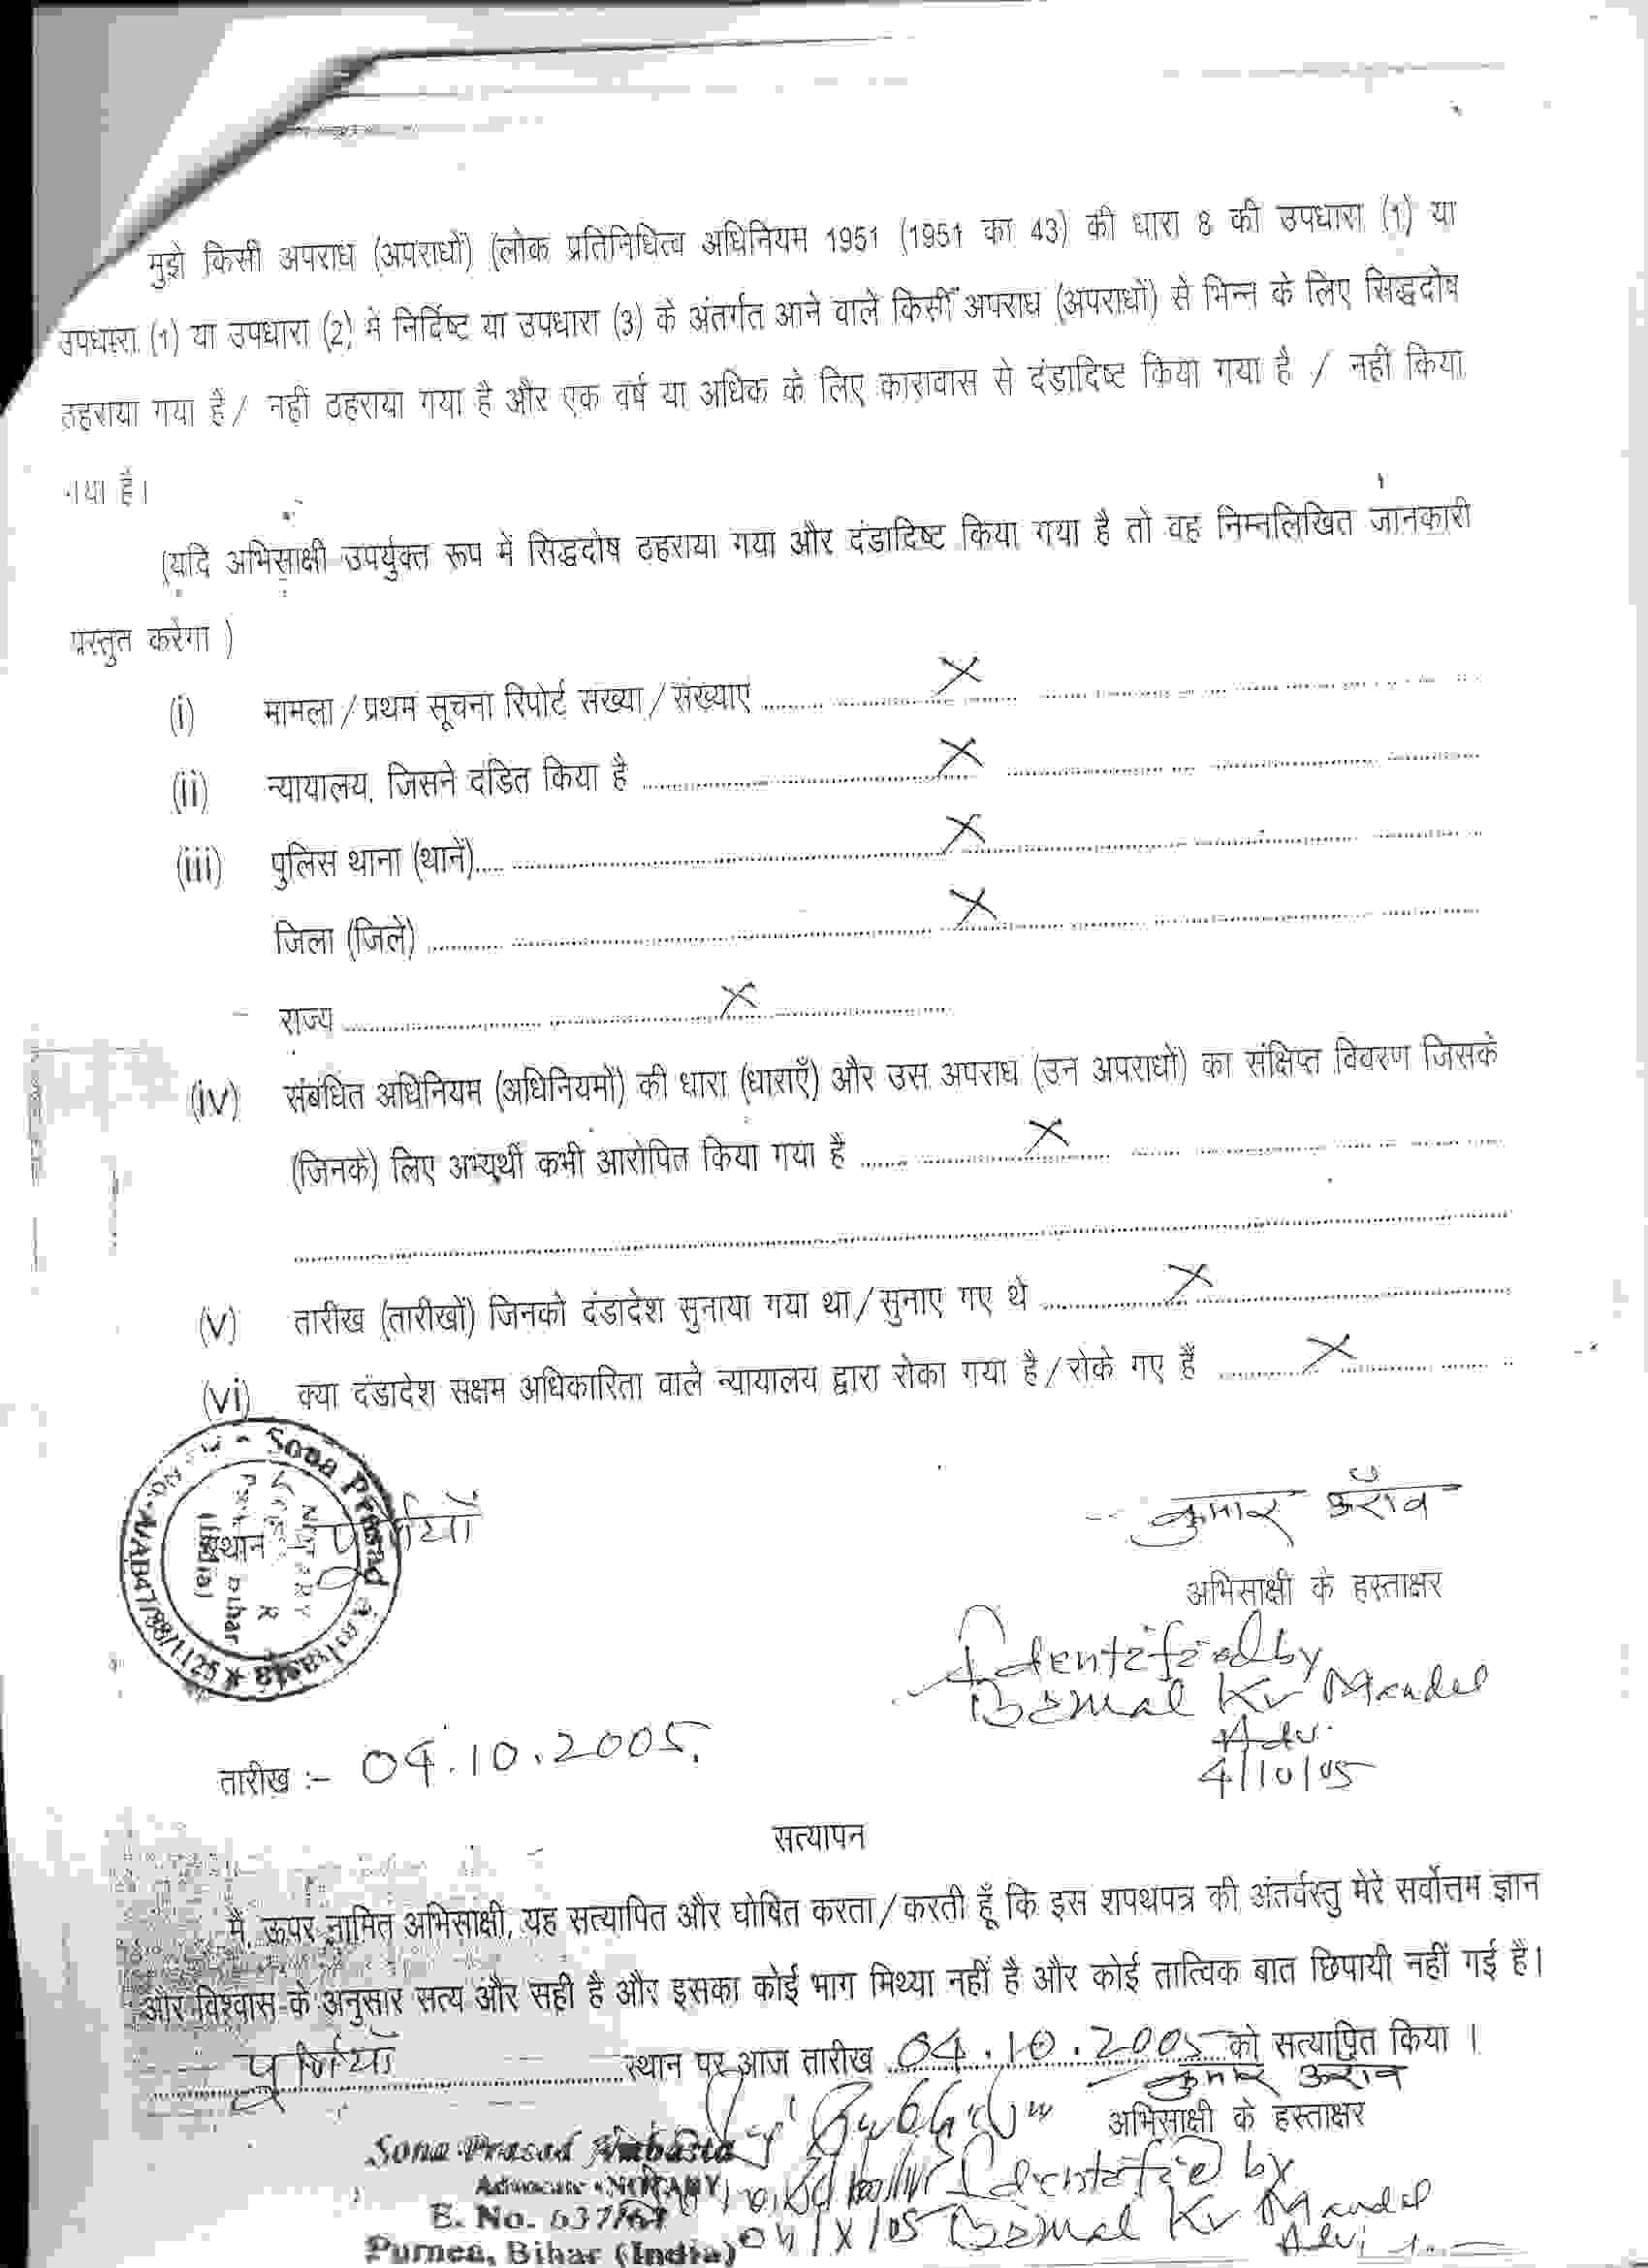 मुझे किसी अपराध (अपराधों) (लोक प्रतिनिधित्व अधिनियम 1951 (1951 का 43) की धारा 8 की उपधारा (1) या
उपधारा (1) या उपधारा (2) में निर्दिष्ट या उपधारा (3) के अंतर्गत आने वाले किसी अपराध (अपराधों) से भिन्न के लिए सिद्धदोष
ठहराया गया है / नहीं ठहराया गया है और एक वर्ष या अधिक के लिए कारावास से दंडादिष्ट किया गया है / नहीं किया
गया है।
(यदि अभिसाक्षी उपर्युक्त रूप में सिद्धदोष ठहराया गया और दंडादिष्ट किया गया है तो वह निम्नलिखित जानकारी
प्रस्तुत करेगा )
(i) मामला / प्रथम सूचना रिपोर्ट संख्या / संख्याएं ........ X ........
(ii) न्यायालय, जिसने दंडित किया है ........ X ........
(iii) पुलिस थाना (थानें)........ X ........
जिला (जिले) ........ X ........
राज्य ........ X ........
(iv) संबंधित अधिनियम (अधिनियमों) की धारा (धाराएँ) और उस अपराध (उन अपराधों) का संक्षिप्त विवरण जिसके
(जिनके) लिए अभ्यर्थी कभी आरोपित किया गया है ........ X ........
(v) तारीख (तारीखों) जिनको दंडादेश सुनाया गया था / सुनाए गए थे ........ X ........
(vi) क्या दंडादेश सक्षम अधिकारिता वाले न्यायालय द्वारा रोका गया है / रोके गए हैं ........ X ........
Sona Prasad
NOTARY
Bihar
(India)
स्थान
कुमार उराँव
अभिसाक्षी के हस्ताक्षर
Identified by
Bimal Kr Mandal
Adv.
4/10/05
तारीख :- 04.10.2005.
सत्यापन
मैं, ऊपर नामित अभिसाक्षी, यह सत्यापित और घोषित करता / करती हूँ कि इस शपथपत्र की अंतर्वस्तु मेरे सर्वोत्तम ज्ञान
और विश्वास के अनुसार सत्य और सही है और इसका कोई भाग मिथ्या नहीं है और कोई तात्विक बात छिपायी नहीं गई है।
पूर्णियाँ स्थान पर आज तारीख 04.10.2005 को सत्यापित किया ।
कुमार उराँव
अभिसाक्षी के हस्ताक्षर
Sona Prasad
Advocate NOTARY
E. No. 637/
Purnea, Bihar (India)
04/X/05
Identified by
Bimal Kr Mandal